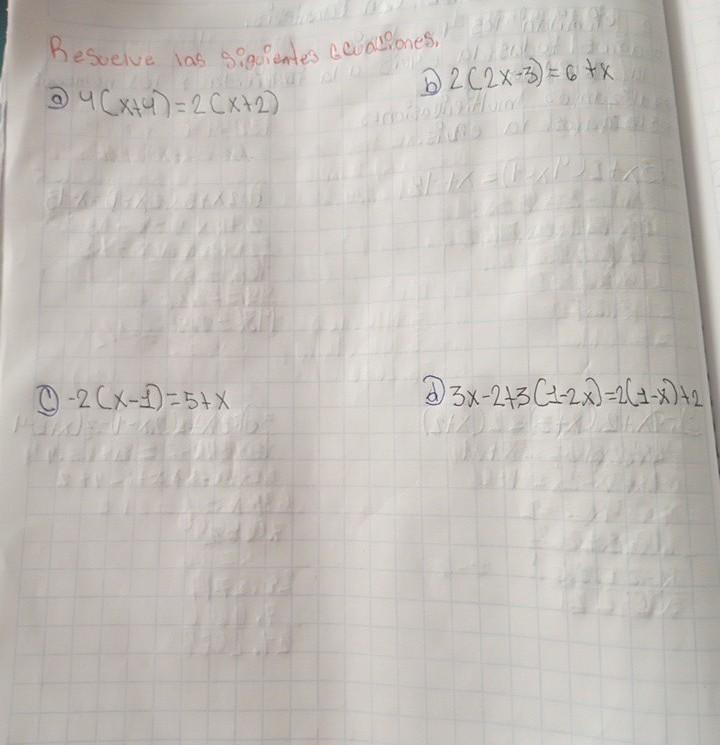 Resuelve las siguientes Ecuaciones.
a) 4(x+4)=2(x+2)
b) 2(2x-3)=6+x
c) -2(x-1)=5+x
d) 3x-2+3(1-2x)=2(1-x)+2